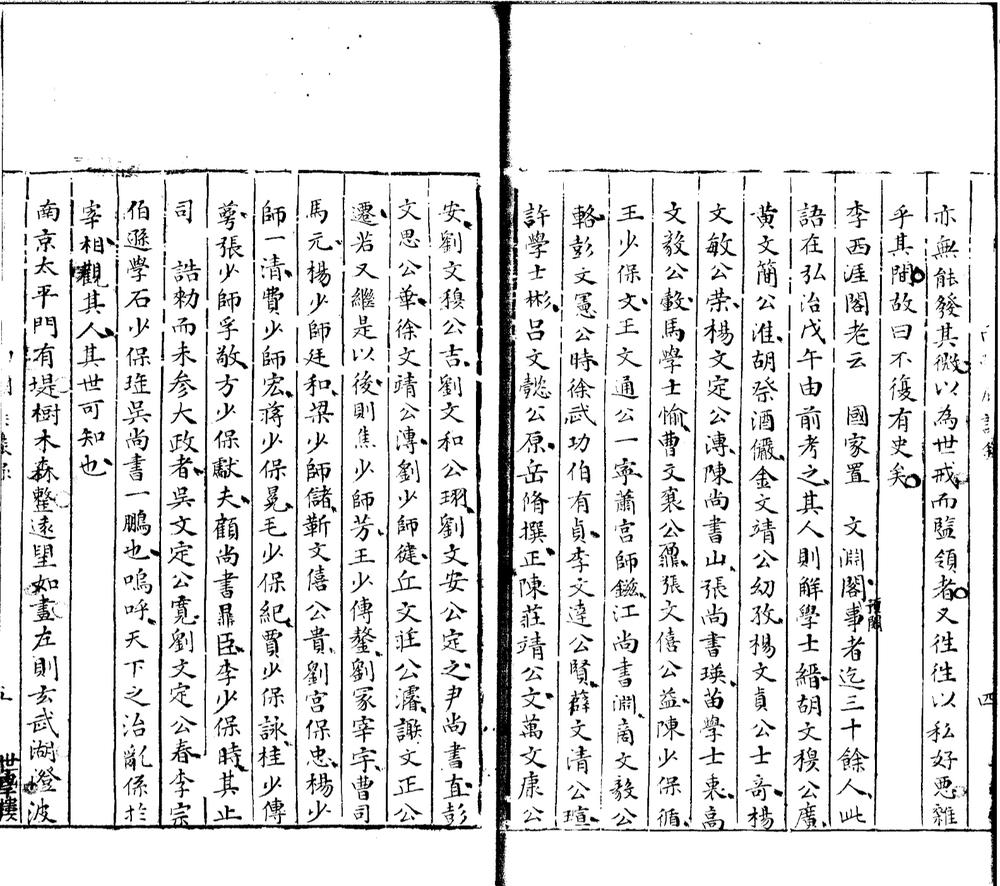 亦無能發其微以為世戒而監領者又徃徃以私好惡雜
乎其間故曰不復有史矣
李西涯閣老云　國家置　文淵閣預閣事者迄三十餘人此
語在弘治戊午由前考之其人則解學士縉胡文穆公廣
黃文簡公淮胡祭酒儼金文靖公幼孜楊文貞公士奇楊
文敏公榮楊文定公溥陳尚書山張尚書瑛苗學士衷高
文毅公轂馬學士愉曹文襄公鼐張文僖公益陳少保循
王少保文王文通公一寧蕭宮師鎡江尚書淵商文毅公
輅彭文憲公時徐武功伯有貞李文達公賢薛文清公瑄
許學士彬呂文懿公原岳脩撰正陳莊靖公文萬文康公
安劉文穆公吉劉文和公珝劉文安公定之尹尚書直彭
文思公華徐文靖公溥劉少師健丘文莊公濬謝文正公
遷若又繼是以後則焦少師芳王少傅鏊劉冢宰宇曹司
馬元楊少師廷和梁少師儲靳文僖公貴劉宮保忠楊少
師一清費少師宏蔣少保冕毛少保紀賈少保詠桂少傅
萼張少師孚敬方少保獻夫顧尚書鼎臣李少保時其止
司　誥勑而未參大政者吳文定公寬劉文定公春李宗
伯遜學石少保珤吳尚書一鵬也嗚呼天下之治亂係於
宰相觀其人其世可知也
南京太平門有堤樹木森整遠望如畫左則玄武湖澄波
四
五
世學樓